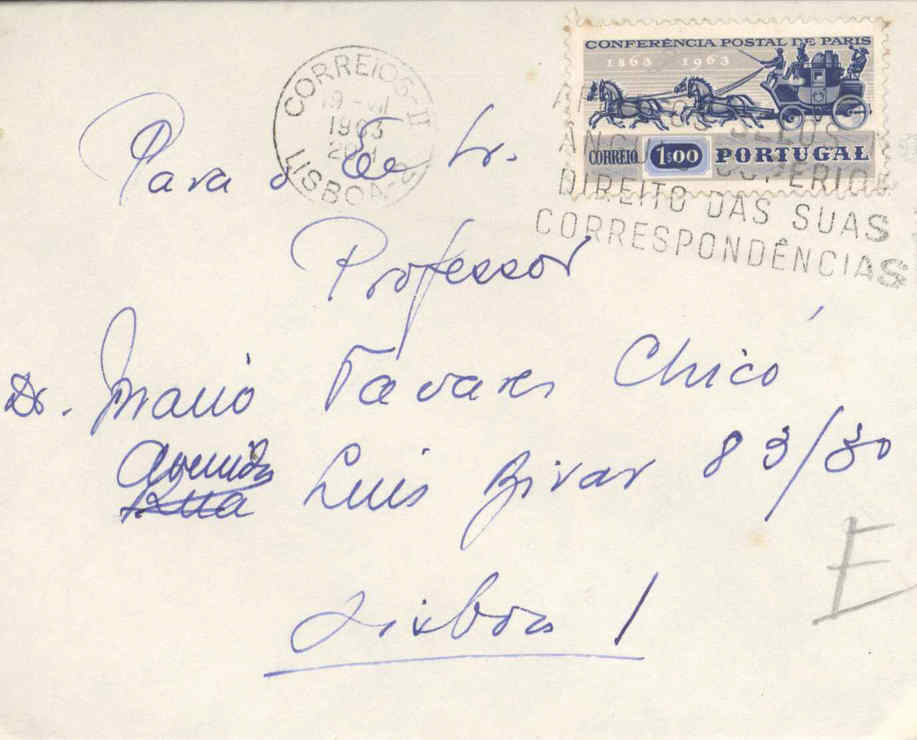 CONFERÊNCIA POSTAL DE PARIS
1863 1963
CORREIO 1$00 PORTUGAL
CORREIOS-II
19-VII
1963
LISBOA
SELOS
SUPERIOR
DIREITO DAS SUAS
CORRESPONDÊNCIAS
Para o Sr.
Professor
Dr. Mario Tavares Chicó
Avenida
Rua Luis Bivar 83/3o
Lisboa 1
E